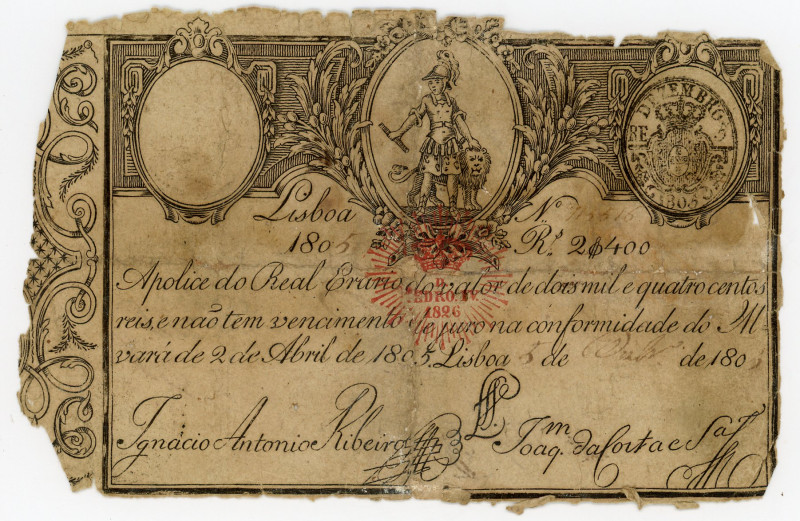 DEZEMBRO
1805
Lisboa
1805
Nº
Rˢ 2$400
Apolice do Real Erario do valor de dois mil e quatro centos
reis, e não tem vencimento de juro na conformidade do Al-
vará de 2 de Abril de 1805. Lisboa 5 de de 1805
D.
PEDRO IV.
1826
Ignácio Antonio Ribeiro
Joaqᵐ da Costa e Sᵃ